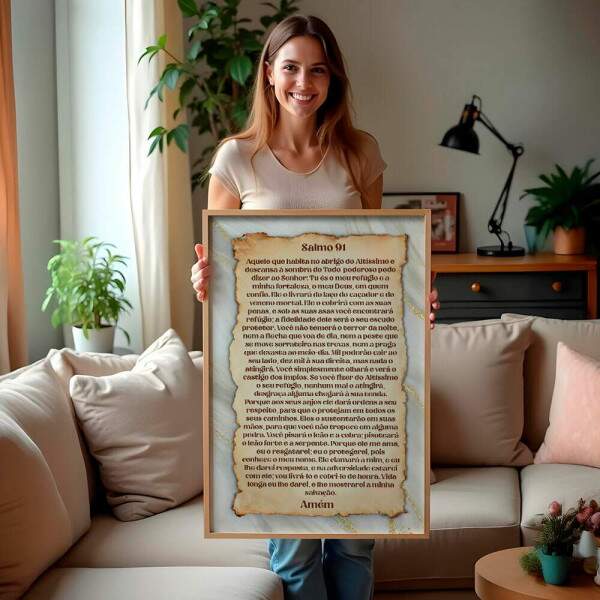 Salmo 91
Aquele que habita no abrigo do Altíssimo e
descansa à sombra do Todo-poderoso pode
dizer ao Senhor: Tu és o meu refúgio e a
minha fortaleza, o meu Deus, em quem
confio. Ele o livrará do laço do caçador e do
veneno mortal. Ele o cobrirá com as suas
penas, e sob as suas asas você encontrará
refúgio; a fidelidade dele será o seu escudo
protetor. Você não temerá o terror da noite,
nem a flecha que voa de dia, nem a peste que
se move sorrateira nas trevas, nem a praga
que devasta ao meio-dia. Mil poderão cair ao
seu lado, dez mil à sua direita, mas nada o
atingirá. Você simplesmente olhará e verá o
castigo dos ímpios. Se você fizer do Altíssimo
o seu refúgio, nenhum mal o atingirá,
desgraça alguma chegará à sua tenda.
Porque aos seus anjos ele dará ordens a seu
respeito, para que o protejam em todos os
seus caminhos. Eles o sustentarão em suas
mãos, para que você não tropece em alguma
pedra. Você pisará o leão e a cobra; pisoteará
o leão forte e a serpente. Porque ele me ama,
eu o protegerei, pois
conhece o meu nome. Ele clamará a mim, e eu
lhe darei resposta, e na adversidade estarei
com ele; vou livrá-lo e cobri-lo de honra. Vida
longa eu lhe darei, e lhe mostrarei a minha
salvação.
Amém